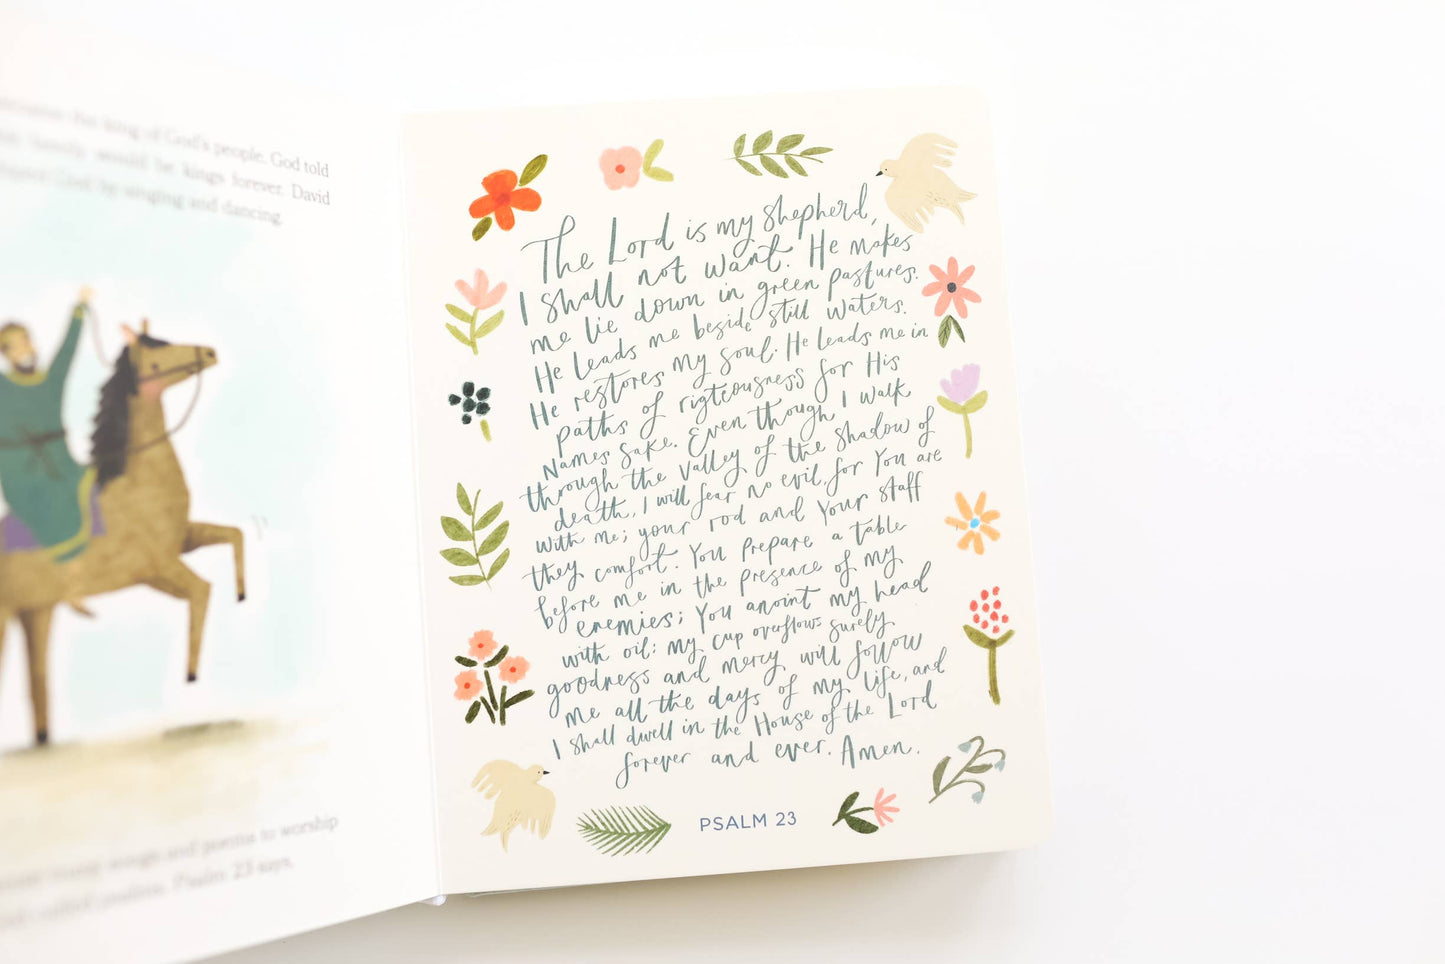 the king of God's people. God told
family would be kings forever. David
God by singing and dancing.
songs and poems to worship
called psalms. Psalm 23 says,
The Lord is my shepherd,
I shall not want. He makes
me lie down in green pastures.
He leads me beside still waters.
He restores my soul. He leads me in
paths of rigteousness for His
Names Sake. Even though I walk
through the valley of the shadow of
death, I will fear no evil, for You are
with me; your rod and Your staff
they comfort. You prepare a table
before me in the presence of my
enemies; You anoint my head
with oil; my cup overflows surely
goodness and mercy will follow
me all the days of my life, and
I shall dwell in the House of the Lord
forever and ever. Amen.
PSALM 23